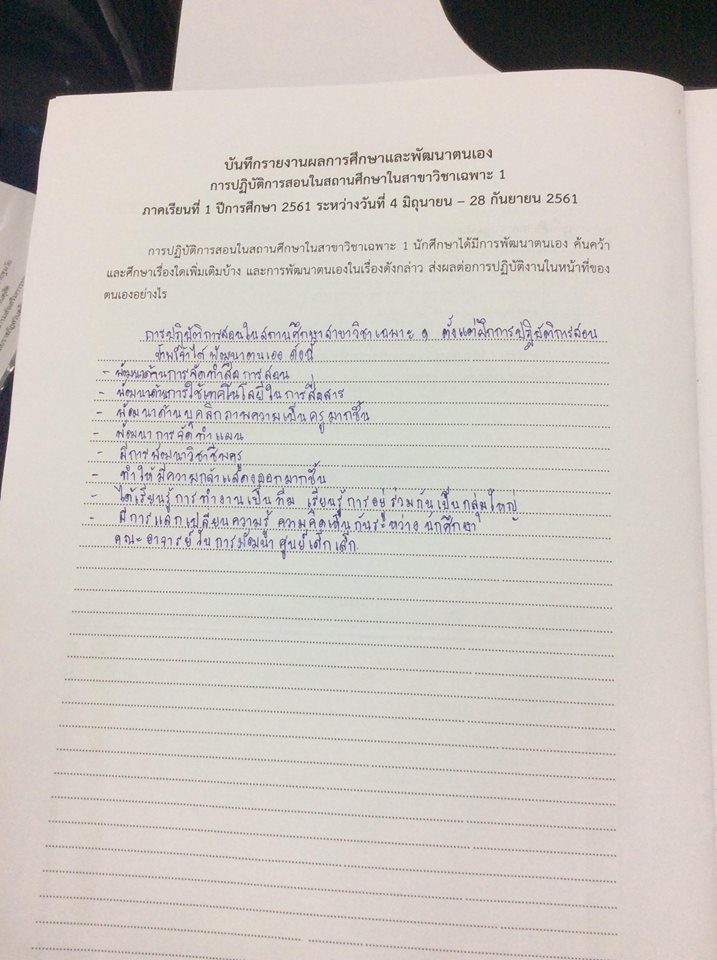 บันทึกรายงานผลการศึกษาและพัฒนาตนเอง
การปฏิบัติการสอนในสถานศึกษาในสาขาวิชาเฉพาะ 1
ภาคเรียนที่ 1 ปีการศึกษา 2561 ระหว่างวันที่ 4 มิถุนายน – 28 กันยายน 2561
การปฏิบัติการสอนในสถานศึกษาในสาขาวิชาเฉพาะ 1 นักศึกษาได้มีการพัฒนาตนเอง ค้นคว้า
และศึกษาเรื่องใดเพิ่มเติมบ้าง และการพัฒนาตนเองในเรื่องดังกล่าว ส่งผลต่อการปฏิบัติงานในหน้าที่ของ
ตนเองอย่างไร
การปฏิบัติการสอนในสถานศึกษาสาขาวิชาเฉพาะ ๑ ตั้งแต่ฝึกการปฏิบัติการสอน
ข้าพเจ้าได้พัฒนาตนเอง ดังนี้
- พัฒนาด้านการจัดทำสื่อการสอน
- พัฒนาด้านการใช้เทคโนโลยีในการสื่อสาร
- พัฒนาด้านบุคลิกภาพความเป็นครูมากขึ้น
- พัฒนาการจัดทำแผน
- มีการพัฒนาวิชาชีพครู
- ทำให้มีความกล้าแสดงออกมากขึ้น
- ได้เรียนรู้การทำงานเป็นทีม เรียนรู้การอยู่ร่วมกันเป็นกลุ่มใหญ่
- มีการแลกเปลี่ยนความรู้ ความคิดเห็นกันระหว่าง นักศึกษา
คณะอาจารย์ การพัฒนา ศูนย์เด็กเล็ก